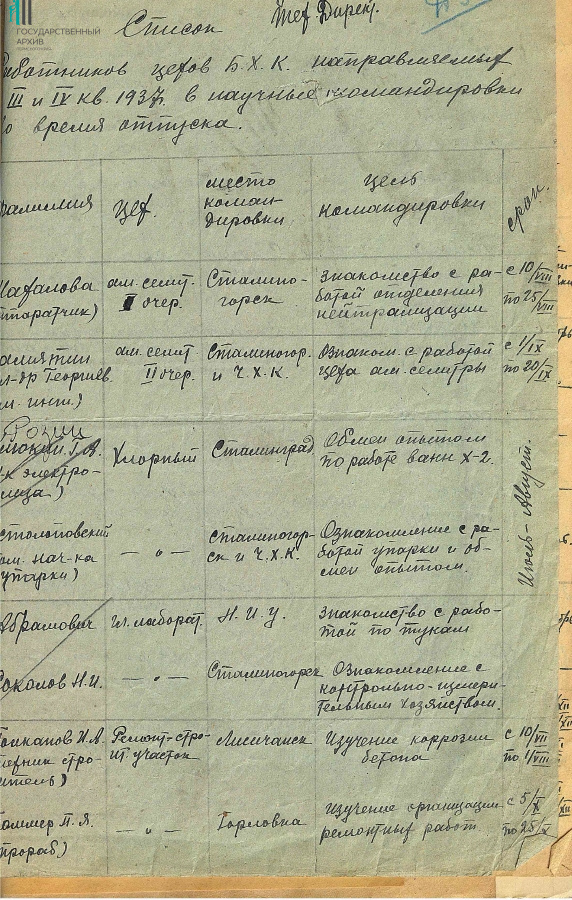 ГОСУДАРСТВЕННЫЙ
АРХИВ
Список
Тех. Дирек.
работников цехов Б.Х.К. направляемых
III и IV кв. 1937г. в научные командировки
во время отпуска.
фамилия
цех.
место
коман-
дировки
цель
командировки
срок.
(аппаратчик)
ам. селит.
II очер.
Сталино-
горск
Знакомство с ра-
ботой отделения
нейтрализации
с 10/VIII
по 25/VIII
ам. селит
II очер.
Сталиногор.
и Ч.Х.К.
Ознаком. с работой
цеха ам. селитры
с 1/IX
по 20/IX
Хлорный
Сталинград
Обмен опытом
по работе ванн Х-2.
Июль-Август.
столоповский
пом. нач-ка
упарки)
— " —
Сталиногор-
ск и Ч.Х.К.
Ознакомление с ра-
ботой упарки и об-
мен опытом.
Абрамович
гл. лаборат.
Н.И.У.
Знакомство с рабо-
той по тукам
Соколов Н.И.
— " —
Сталиногорск
Ознакомление с
контрольно-измери-
тельным хозяйством.
Ремонт-стро-
ит. участок
Лисичанск
Изучение коррозии
бетона
с 10/VII
по 1/VIII
П.Я.
(прораб)
— " —
Горловка
Изучение организации
ремонтных работ
с 5/X
по 25/X